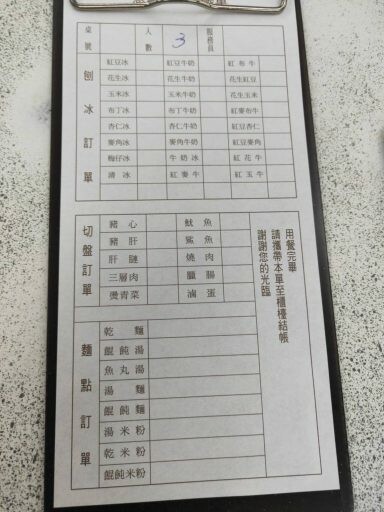 桌號 人數 3 服務員
刨冰訂單
紅豆冰 紅豆牛奶 紅布牛
花生冰 花生牛奶 花生紅豆
玉米冰 玉米牛奶 花生玉米
布丁冰 布丁牛奶 紅麥布牛
杏仁冰 杏仁牛奶 紅豆杏仁
麥角冰 麥角牛奶 紅豆麥角
梅仔冰 牛奶冰 紅花牛
清冰 紅麥牛 紅玉牛
切盤訂單
豬心 魷魚
豬肝 鯊魚
肝腱 燒肉
三層肉 臘腸
燙青菜 滷蛋
用餐完畢
請攜帶本單至櫃檯結帳
謝謝您的光臨
麵點訂單
乾麵
餛飩湯
魚丸湯
湯麵
餛飩麵
湯米粉
乾米粉
餛飩米粉